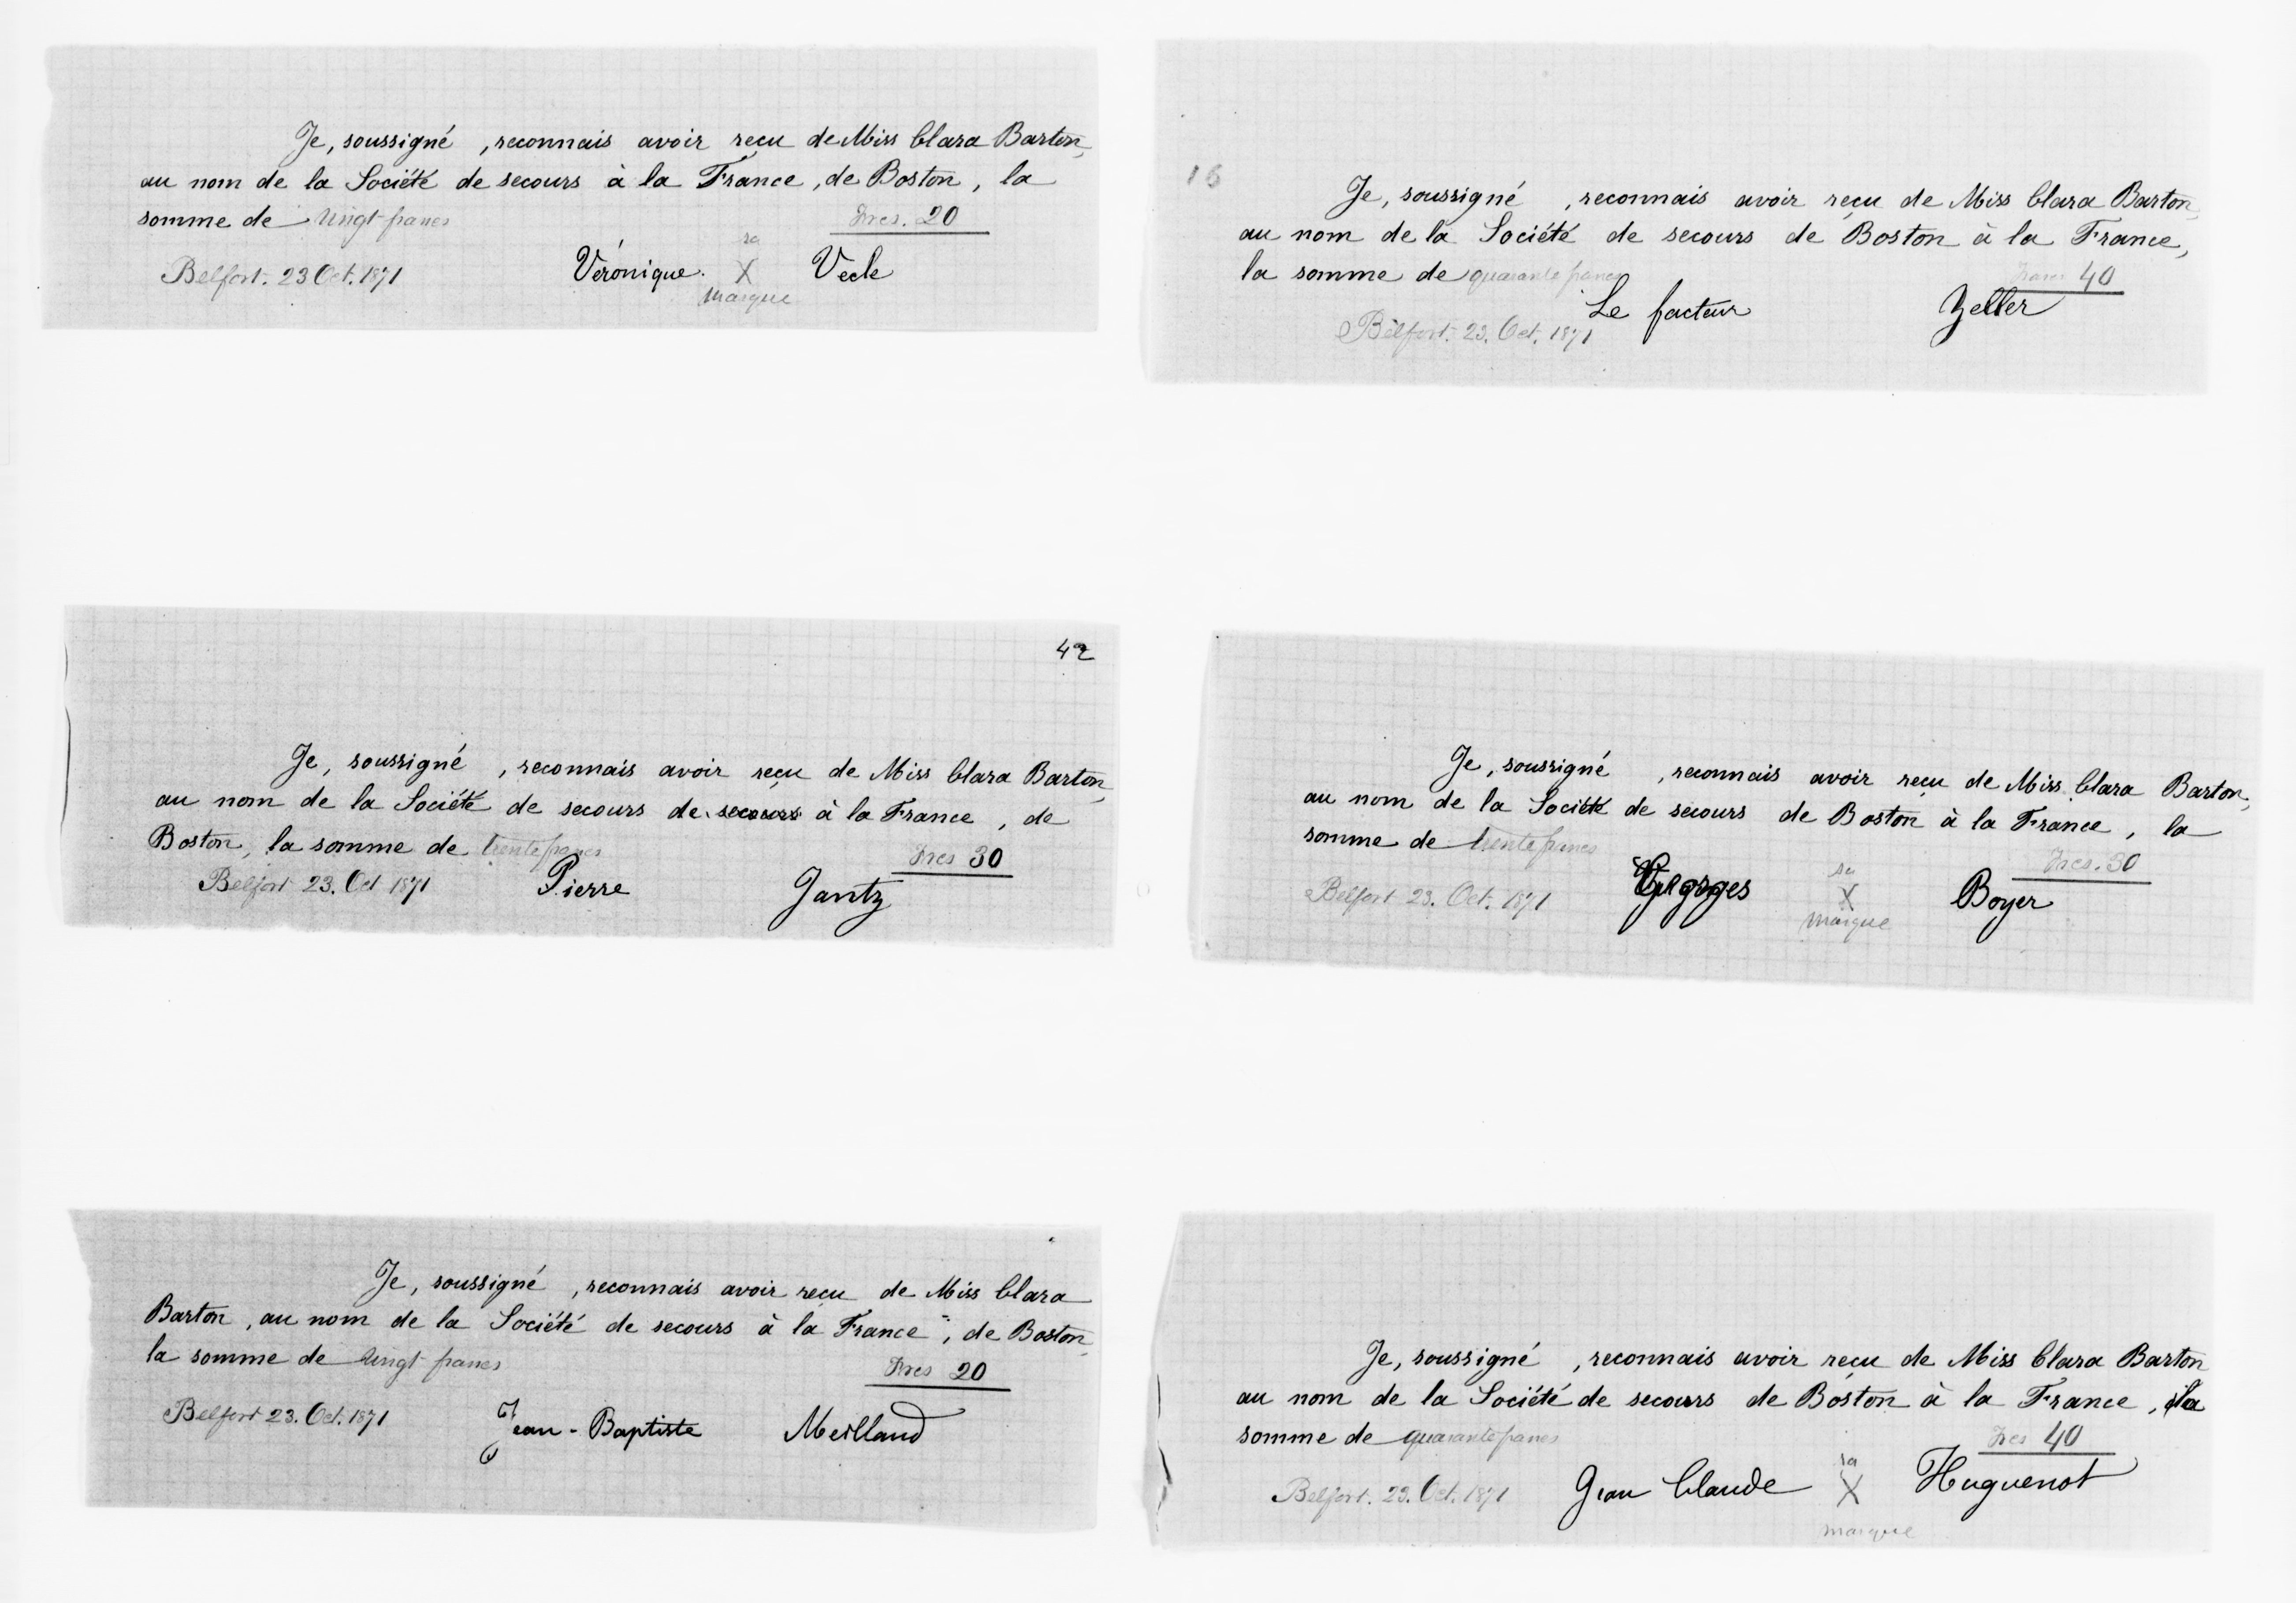 Je, soussigné , reconnais avoir reçu de Miss Clara Barton,
au nom de la Société de secours à la France, de Boston, la
somme de vingt francs Frcs. 20
Belfort. 23 Oct. 1871 Véronique sa X marque Vecle
16
Je, soussigné , reconnais avoir reçu de Miss Clara Barton,
au nom de la Société de secours de Boston à la France,
la somme de quarante francs Francs 40
Le facteur Zeller
Belfort. 23. Oct. 1871
42
Je, soussigné , reconnais avoir reçu de Miss Clara Barton,
au nom de la Société de secours de secours à la France, de
Boston, la somme de trente francs Frcs 30
Belfort 23. Oct 1871 Pierre Jantz
Je, soussigné , reconnais avoir reçu de Miss Clara Barton,
au nom de la Société de secours de Boston à la France, la
somme de trente francs Frcs. 30
Belfort 23. Oct. 1871 Georges sa X marque Boyer
Je, soussigné , reconnais avoir reçu de Miss Clara
Barton, au nom de la Société de secours à la France, de Boston,
la somme de vingt francs Frcs 20
Belfort 23. Oct. 1871 Jean-Baptiste Meilland
Je, soussigné , reconnais avoir reçu de Miss Clara Barton
au nom de la Société de secours de Boston à la France, la
somme de quarante francs Frcs 40
Belfort. 23. Oct. 1871 Jean Claude sa X marque Huguenot